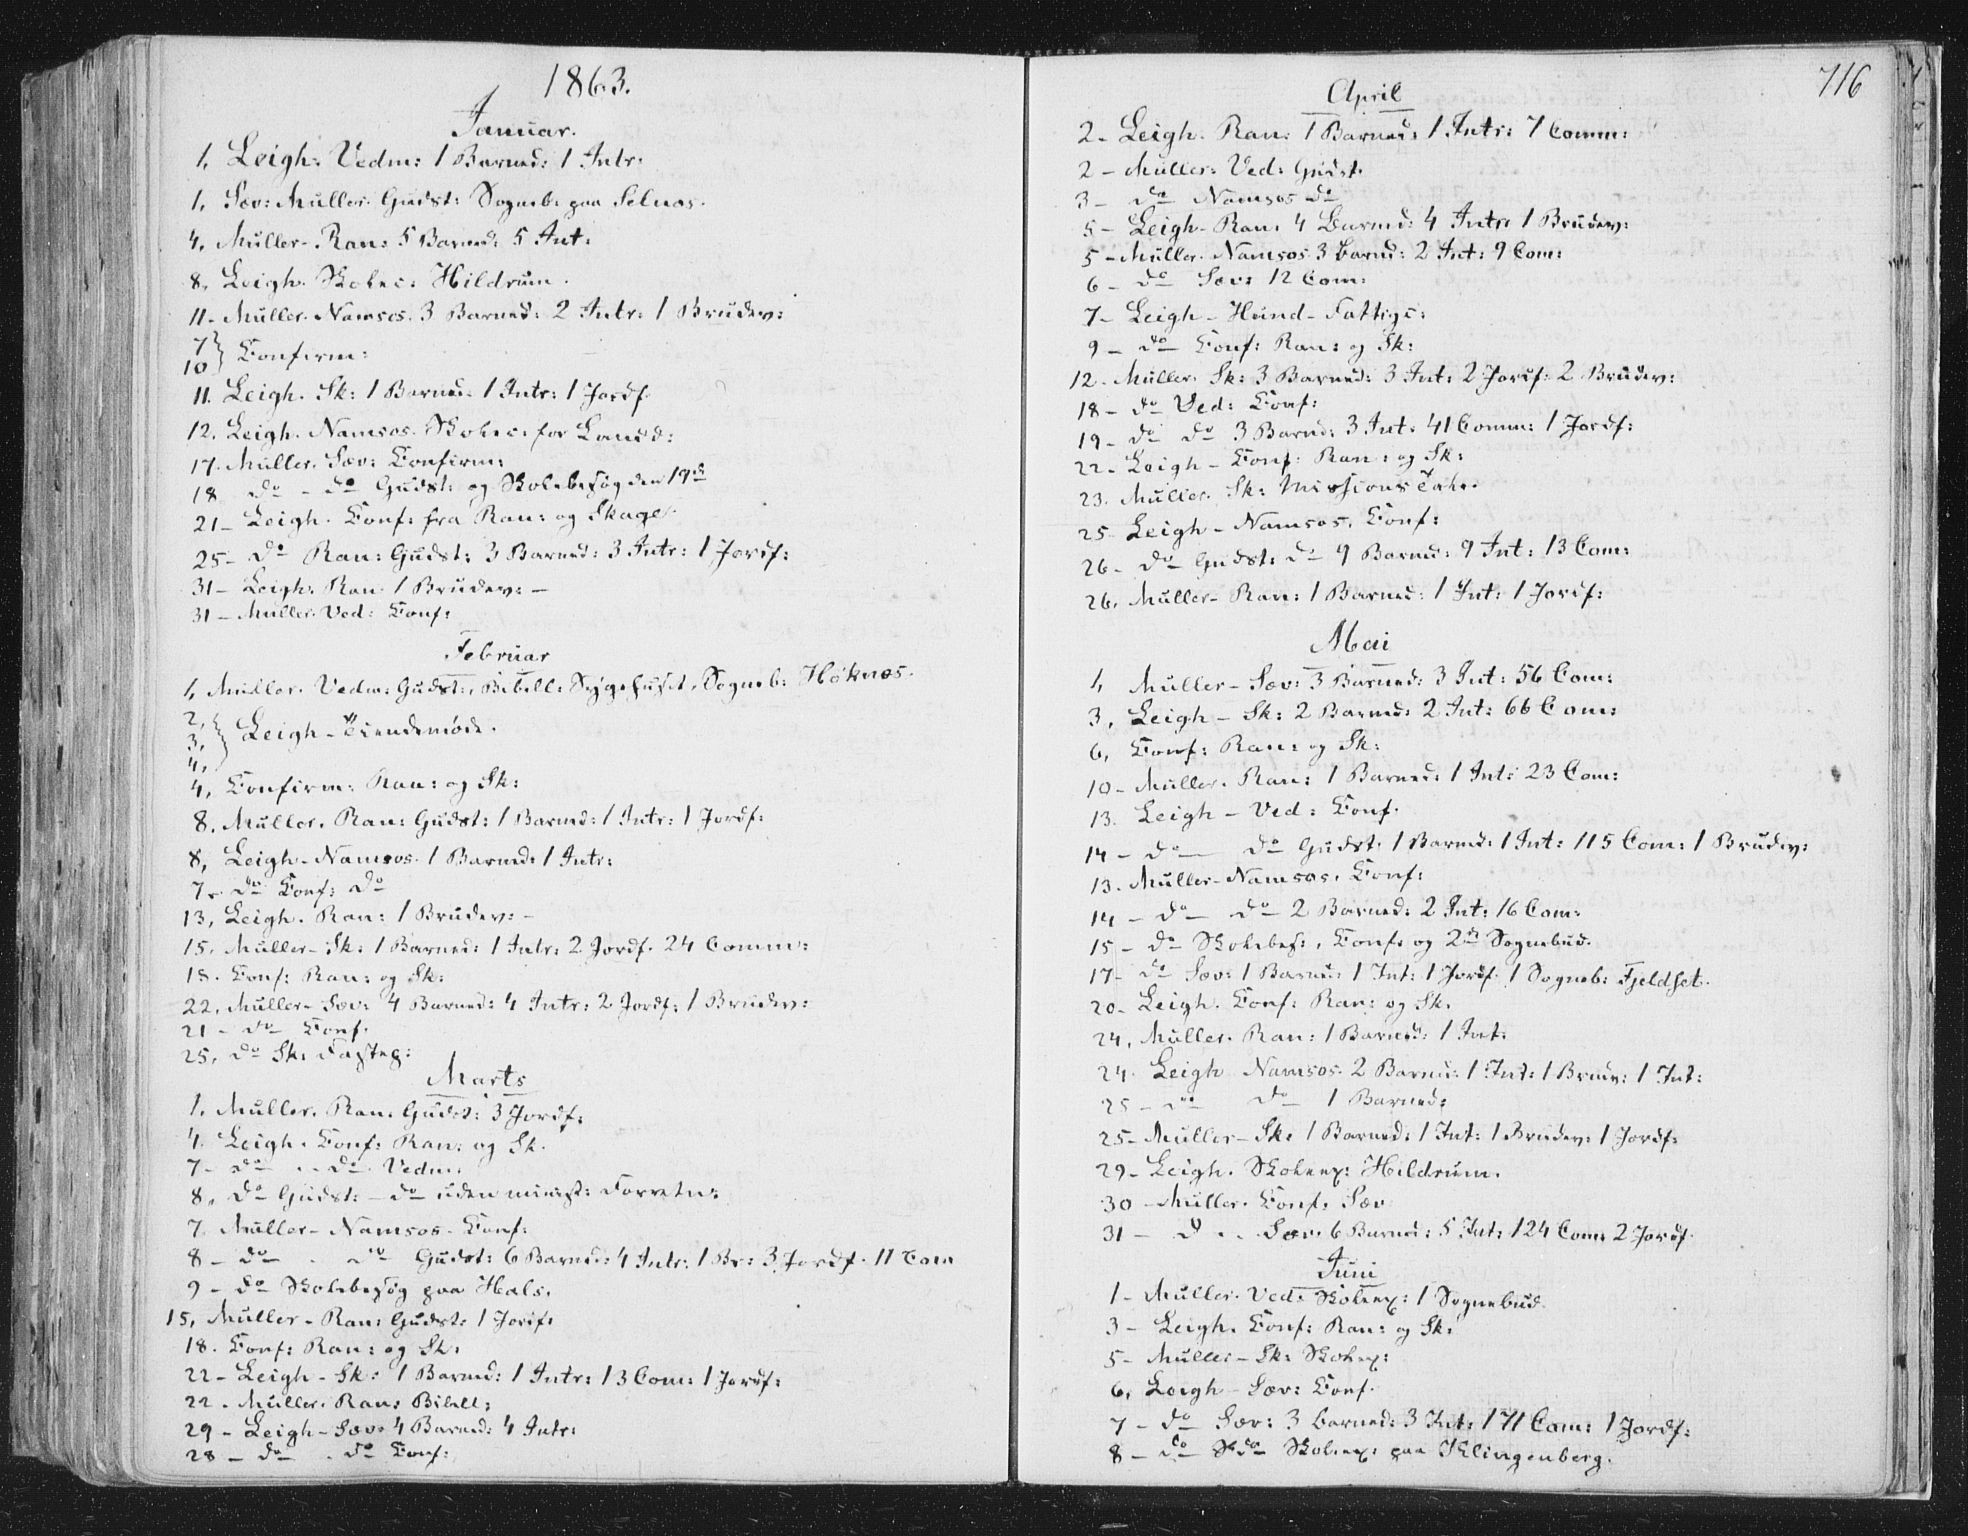 1863.
Januar.
1. Leigh: Vedm: 1 Barned: 1 Intr:
1. Sæv: Müller. Gudst: Sogneb. paa Selnæs.
4. Müller - Ran: 5 Barned: 5 Int:
8. Leigh. Skolec: Hildrum.
11 - Müller. Namsos. 3 Barned: 2 Intr: 1 Brudev:
7 } Confirm:
10 }
11. Leigh. Sk: 1 Barned. 1 Intr: 1 Jordf.
12. Leigh. Namsos. Skolec. for Landd:
17. Müller. Sæv: Confirm:
18 do - do Gudst: og Skolebesøg den 19de
21 - Leigh. Conf: fra Ran: og Skage.
25 - do Ran: Gudst: 3 Barned: 3 Intr: 1 Jordf:
31 - Leigh: Ran 1 Brudev: -
31 - Müller. Ved: Conf:
Februar
1, Müller. Vedm: Gudst:, Bibell: Sygehuset, Sogneb: Høknæs.
2, }
3, } Leigh - Tiendemøde.
4, }
4, Confirm: Ran: og Sk:
8. Müller. Ran: Gudst: 1 Barned: 1 Intr: 1 Jordf:
8, Leigh - Namsos. 1 Barned: 1 Intr:
7 - do Conf: do
13, Leigh. Ran: 1 Brudev: -
15. Müller - Sk: 1 Barned: 1 Intr: 2 Jordf. 24 Comm:
18. Conf: Ran: og Sk:
22. Müller - Sæv: 4 Barned: 4 Intr: 2 Jordf: 1 Brudev:
21 - do Conf.
25, do Sk: Fastep:
Marts
1. Müller. Ran. Gudst: 3 Jordf:
4. Leigh. Conf: Ran: og Sk.
7 - do .. do. Vedm:
8. do Gudst: - do uden minist: Forretn:
7 Müller - Namsos - Conf:
8 - do . do Gudst: 6 Barned: 4 Intr: 1 Br: 3 Jordf. 11 Com
9 - do Skolebesøg paa Hals.
15, Müller - Ran: Gudst: 1 Jordf:
18. Conf: Ran: og Sk:
22 - Leigh - Sk: 1 Barned: 1 Intr: 13 Com: 1 Jordf:
22 - Müller. Ran: Bibell:
29 - Leigh - Sæv: 4 Barned: 4 Intr:
28 - do . do Conf:
716
April
2 - Leigh. Ran: 1 Barned: 1 Intr: 7 Comm:
2 - Müller. Ved: Gudst.
3 - do Namsos do
5 - Leigh - Ran: 4 Barned: 4 Intr: 1 Brudev:
5 - Müller. Namsos 3 Barned: 2 Int: 9 Com:
6 - do Sæv: 12 Com:
7 - Leigh - Hund - Fattigc:
9 - do Conf: Ran: og Sk:
12. Müller. Sk: 3 Barned: 3 Int: 2 Jordf: 2 Brudev:
18 - do Ved: Conf:
19 - do do 3 Barned: 3 Int: 41 Comm: 1 Jordf:
22 - Leigh - Conf: Ran: og Sk:
23. Müller. Sk: Missions Tale.
25 Leigh - Namsos. Conf:
26 - do Gudst: do 9 Barned: 9 Int: 13 Com:
26. Müller - Ran: 1 Barned: 1 Int: 1 Jordf:
Mai
1, Müller - Sæv: 3 Barned: 3 Int: 56 Com:
3, Leigh - Sk: 2 Barned: 2 Int: 66 Com:
6, Conf: Ran: og Sk:
10 - Müller. Ran: 1 Barned: 1 Int: 23 Com:
13. Leigh - Ved: Conf.
14 - do do Gudst. 1 Barned: 1 Int: 115 Com: 1 Brudev:
13. Müller - Namsos. Conf:
14 - do - do 2 Barned: 2 Int: 16 Com:
15 - do Skolebes:, Conf. og 2de Sognebud.
17 - do Sæv: 1 Barned: 1 Int: 1 Jordf. 1 Sogneb: Fjeldset.
20 - Leigh. Conf: Ran: og Sk.
24, Müller. Ran: 1 Barned: 1 Int:
24 - Leigh Namsos. 2 Barned: 1 Int: 1 Brudv: 1 Int:
25 - do do 1 Barned:
25 - Müller - Sk: 1 Barned: 1 Int: 1 Brudev: 1 Jordf:
29 - Leigh. Skoleex: Hildrum.
30 - Müller. Conf. Sæv
31 - d .. Sæv. 6 Barned: 5 Int: 124 Com: 2 Jordf.
Juni
1 - Müller. Ved: Skoleex: 1 Sognebud.
3 - Leigh. Conf: Ran: og Sk:
5 - Müller - Sk: Skoleex:
6, Leigh - Sæv: Conf.
7 - do Sæv: 3 Barned: 3 Int: 171 Com: 1 Jordf:
8 - do do Skoleex: paa Klingenberg.